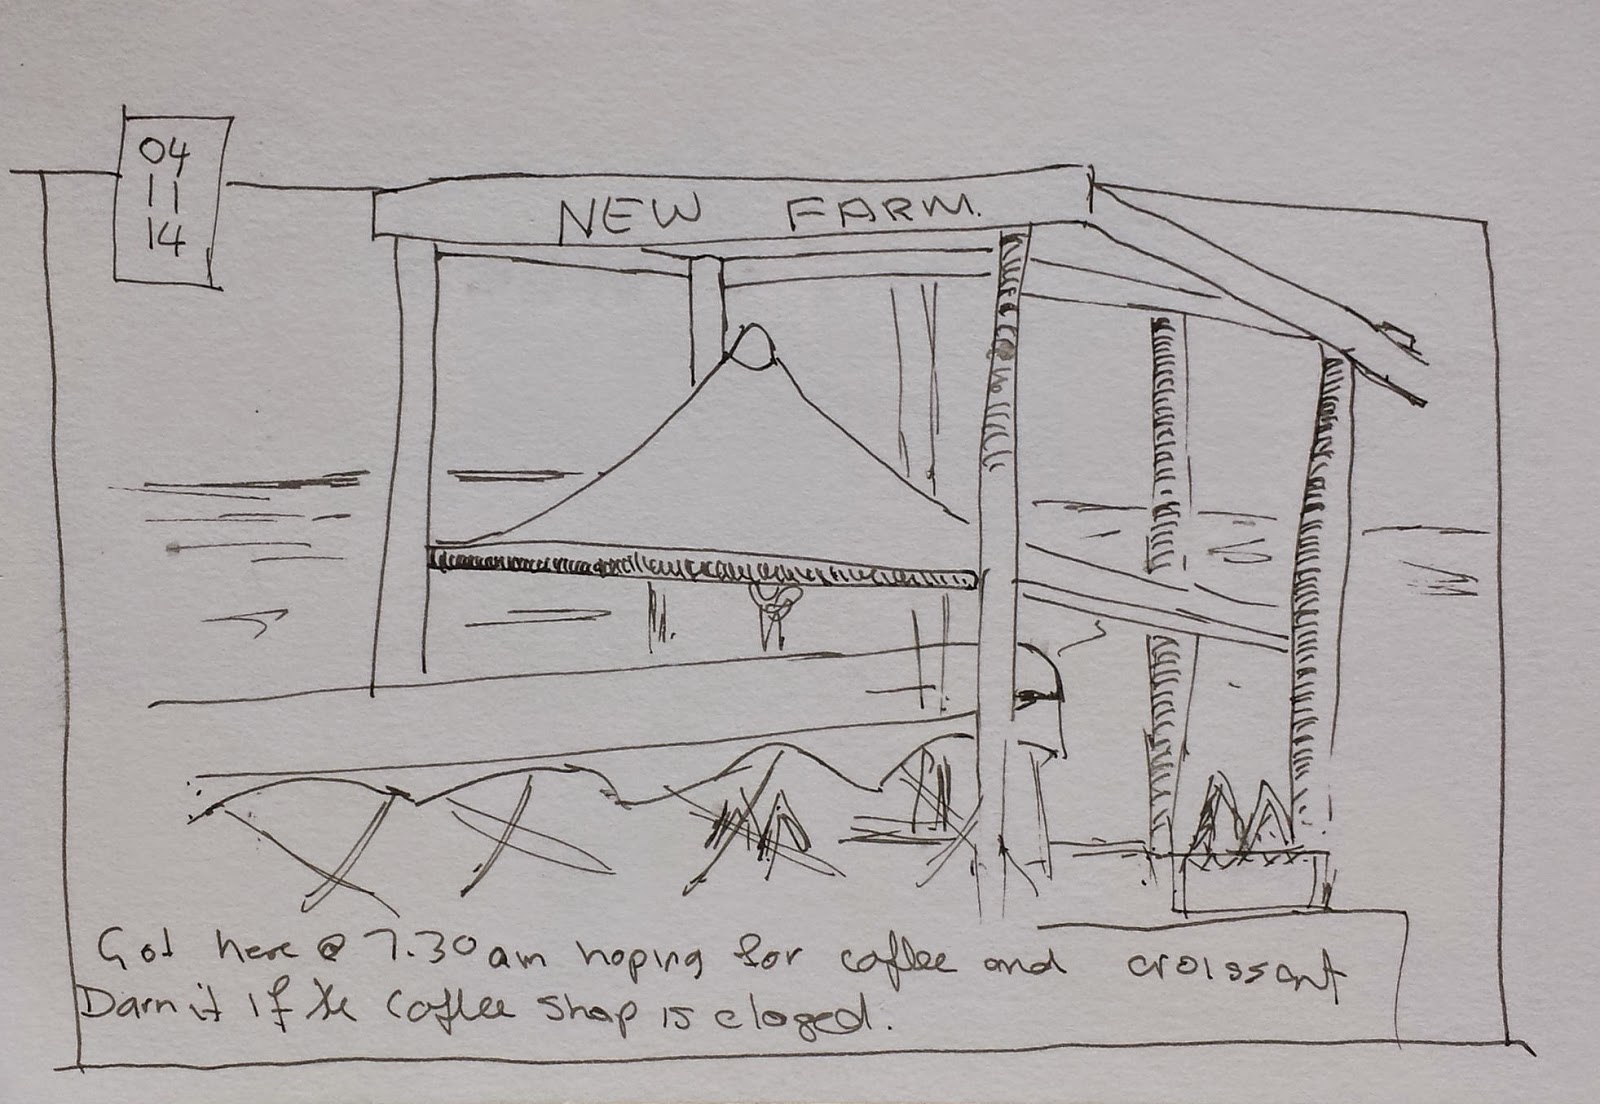 04
11
14
NEW FARM.
Got here @ 7.30am hoping for coffee and croissant
Darn it if the coffee shop is closed.